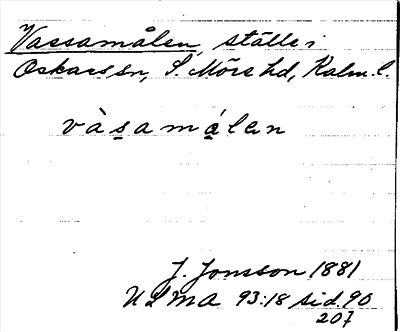 Vassamålen, ställe i
Oskars sn, S. Möre hd, Kalm. l.
vàsamålen
J. Jonsson 1881
ULMA 93:18 sid. 90
207